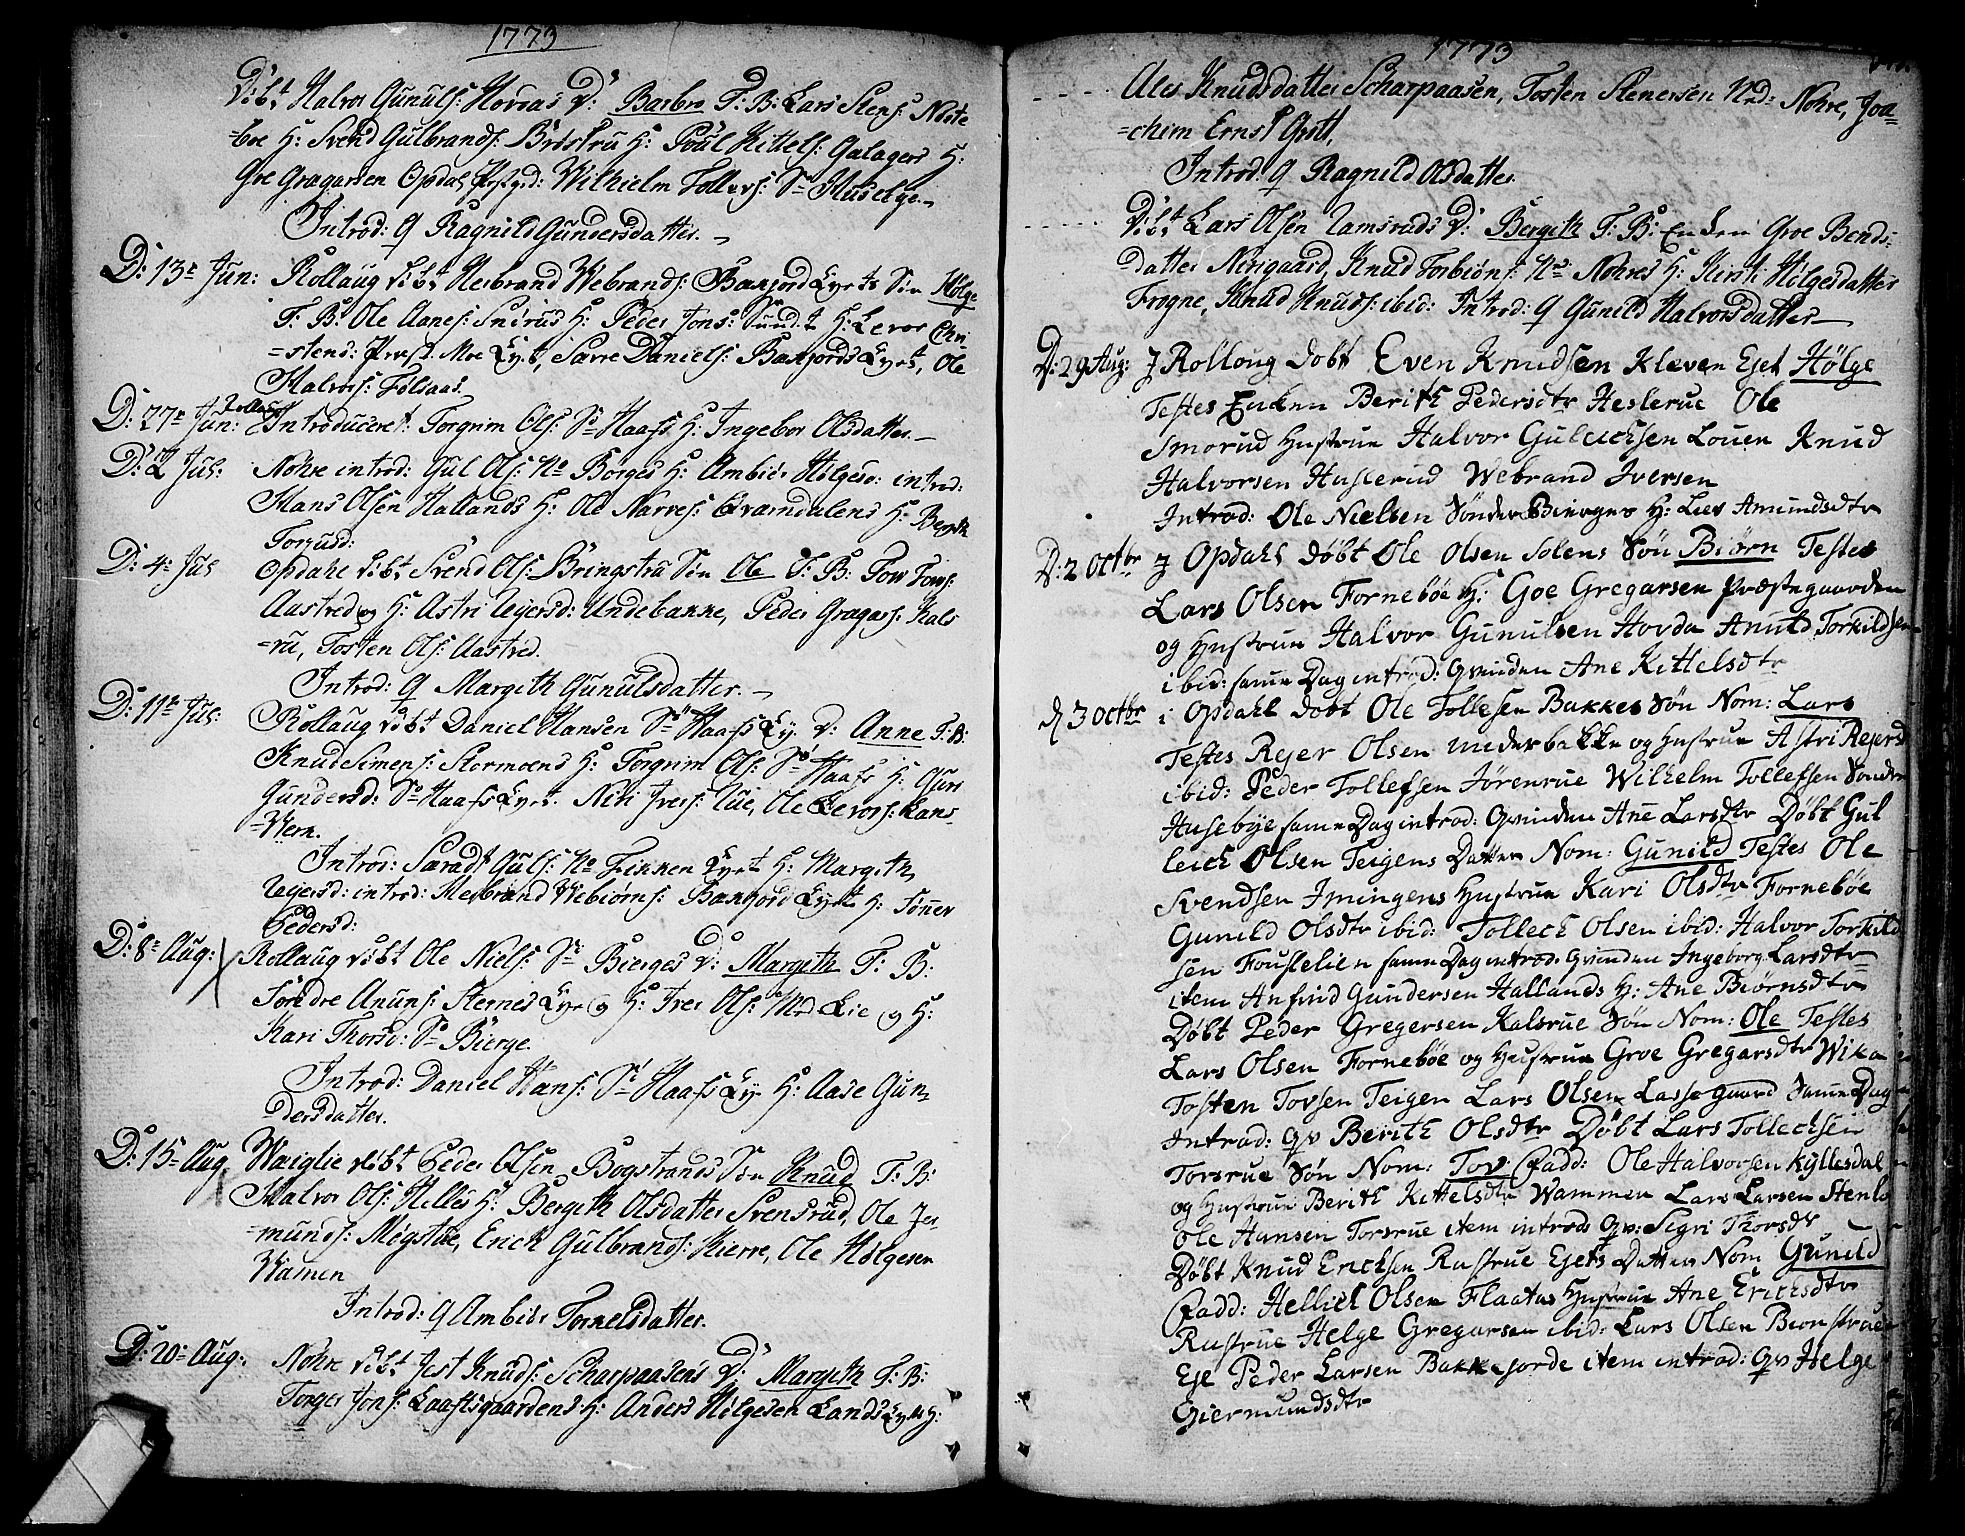 1773
Døbt Halvor Gunuls: Hovdas D: Barbro F: B: Lars Stens: Nørste
=boe H: Svend Gulbrands: Brøstru H: Poul Kittels: Galagers H:
Groe Gragarsen Opdal Præstgrd: Wilhielm Tollevs: Sr Husebye
Introd: Q Ragnild Gundersdatter.
D: 13de Jun: Rollaug døbt Herbrand Webrands: Bakjord Eyets Søn Hølge
F: B: Ole Aanes: Snørus H: Peder Jons: H: Levor Chri
=stens: Moe Eyet, Sarre Daniels: Bakjords Eyet, Ole
Halvors: Føliaas.
D: 27de Jun: Rollaug Introduceret: Torgrim Ols: Sr Haafs H: Ingebor Olsdatter
D: 2 Jul: Nohre introd: Gul Ols: No Borges H: Ambiør Hølgesd: introd:
Hans Olsen Hallands H: Ole Narves: Qvamdalens H: Bergith
Torjusd:
D: 4: Jul Opdahl døbt Svend Ols: Bringstru Søn Ole F: B: Tov Tovs:
Aastred og H: Astri Reyersd: Undebakke, Peder Gragars: Kals
=ru, Tosten Ols: Aastred.
Introd: Q Margith Gunulsdatter.
D: 11te Jul: Rollaug døbt Daniel Hansen Sr Haafs Ey. D: Anne F: B:
Knud Simens: Stormoens H: Torgrim Ols: Sr Haafs H: Guri
Gundersd: Sr Haafs Eyet. Nils Ivers: Lie, Ole Levors: Kans
=Wern.
Introd: Saradt Guls: No Fekken Eyet H: Margith
Reyersd: introd: Herbrand Webiørns: Bakjord Eyet H: Sønnev
Pedersd:
D: 8de Aug: Rollaug døbt Ole Niels: Sr Bierges D: Margith F: B:
Søndre Anuns: Sternes Eye og H: Iver Ols: Nrd Lie og H:
Kari Thorsd: Sr Bierge.
Introd: Daniel Hans: Sr Haafs Ey H: Aase Gun
=dersdatter.
D: 15de Aug Waiglie døbt Peder Olsen Bogstrands Søn Knud F: B:
Halvor Ols: Helles H: Bergith Olsdatter Svensrud, Ole Jer
=munds: Møgstue, Erich Gulbrands: Kierre, Ole Hølgesen
Wamen
Introd: Q Ambiør Tornelsdatter.
D: 20: Aug: Nohre døbt Jest Knuds: Scharpaasens D: Margith F: B:
Torger Jons: Laaftsgaardens H: Anders Hølgesen Lands Eyets H:
1773
Ales Knudsdatter Scharpaasen, Tosten Stenersen Nrd: Nohre, Joa=
=chim Ernst Grott,
Introd: Q Ragnild Olsdatter
Døbt Lars Olsen Ramsruds D: Bergith F: B: Enken Groe Bends:
datter Norigaard, Knud Torbiøns: No: Nohres H: Kirsti Hølgesdatter
Frogne, Knud Knuds: ibid: Introd: Q Gunild Halvorsdatter
D: 29 Aug: J Rollong Døbt Even Knudsen Kleven Ejet Hølge
Testes Enken Berith Pedersdtr Heslerue Ole
Smorud Hustrue Halvor Gulleichsen Louen Knud
Halvorsen Huslerud Webrand Iversen
Introd: Ole Nielsen Sønder Biergner H: Liev Amundsdtr
D: 2 Octbr J Opdahl Døbt Ole Olsen Solens Søn Biørn Testes
Lars Olsen Fornebøe H: Goe Gregarsen Præstegaarden
og Hustrue Halvor Gunulsen Hovda Knut Torkildsen
ibid: samme Dag introd: Qvinden Ane Kittelsdtr
d 3 Octbr i Opdahl Døbt Ole Tollefsen Bakkes Søn Nom: Lars
Testes Rejer Olsen Underbakke og Hustrue Astri Rejersd
ibid: Peder Tollefsen Jørenrue Wilhelm Tollefsen Sonder
Husebye samme Dag introd: Qvinden Ane Larsdtr Døbt Gul
leich Olsen Teigens Datter Nom: Gunild Testes Ole
Svendsen Imingens Hustrue Kari Olsdtr Fornebøe
Gunild Olsdtr ibid: Tollech Olsen ibid: Halvor Torkild
sen Fouslelien samme Dag introd: Qvinden Ingeborg Larsdtr
item Anfind Gundersen Hallands H: Ane Biørnsdtr
Døbt Peder Gregersen Kalsrue Søn Nom: Ole Testes
Lars Olsen Fornebøe og Hustrue Groe Gregarsdtr Wika
Tosten Tovsen Teigen Lars Olsen Lassegaard Samme Dag
Introd: Qv Berith Olsdtr Døbt Lars Tollechsen
Torsrue Søn Nom: Tov Fadd: Ole Halvorsen Kyllesdal
og Hustrue Berith Kittelsdtr Wammen Lars Larsen Stenbo
Ole Hansen Torsrue item introd: Qv: Segri Thorsdtr
Døbt Knud Erichsen Rustrue Ejets Datter Nom Gunild
Fadd: Helliel Olsen Flaatas Hustrue Ane Erichsdtr
Rustrue Helge Gregarsen ibid: Lars Olsen Bionstrue
Eje Peder Larsen Bakkejorde item introd: Qv Helge
Giermundsdtr